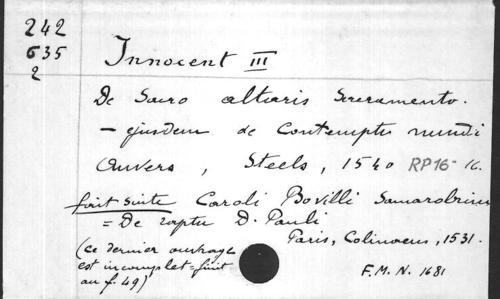 242
635
2
Innocent III
De Sacro altaris Sacramento.
- ejusdem de Contemptu mundi
Anvers, Steels, 1540 RP16- 16.
fait suite Caroli Bovilli Samarobrini
= De raptu D. Pauli
Paris, Colinoeus, 1531.
(ce dernier ouvrage
est incomplet = finit
au f. 49)
F.M.N. 1681